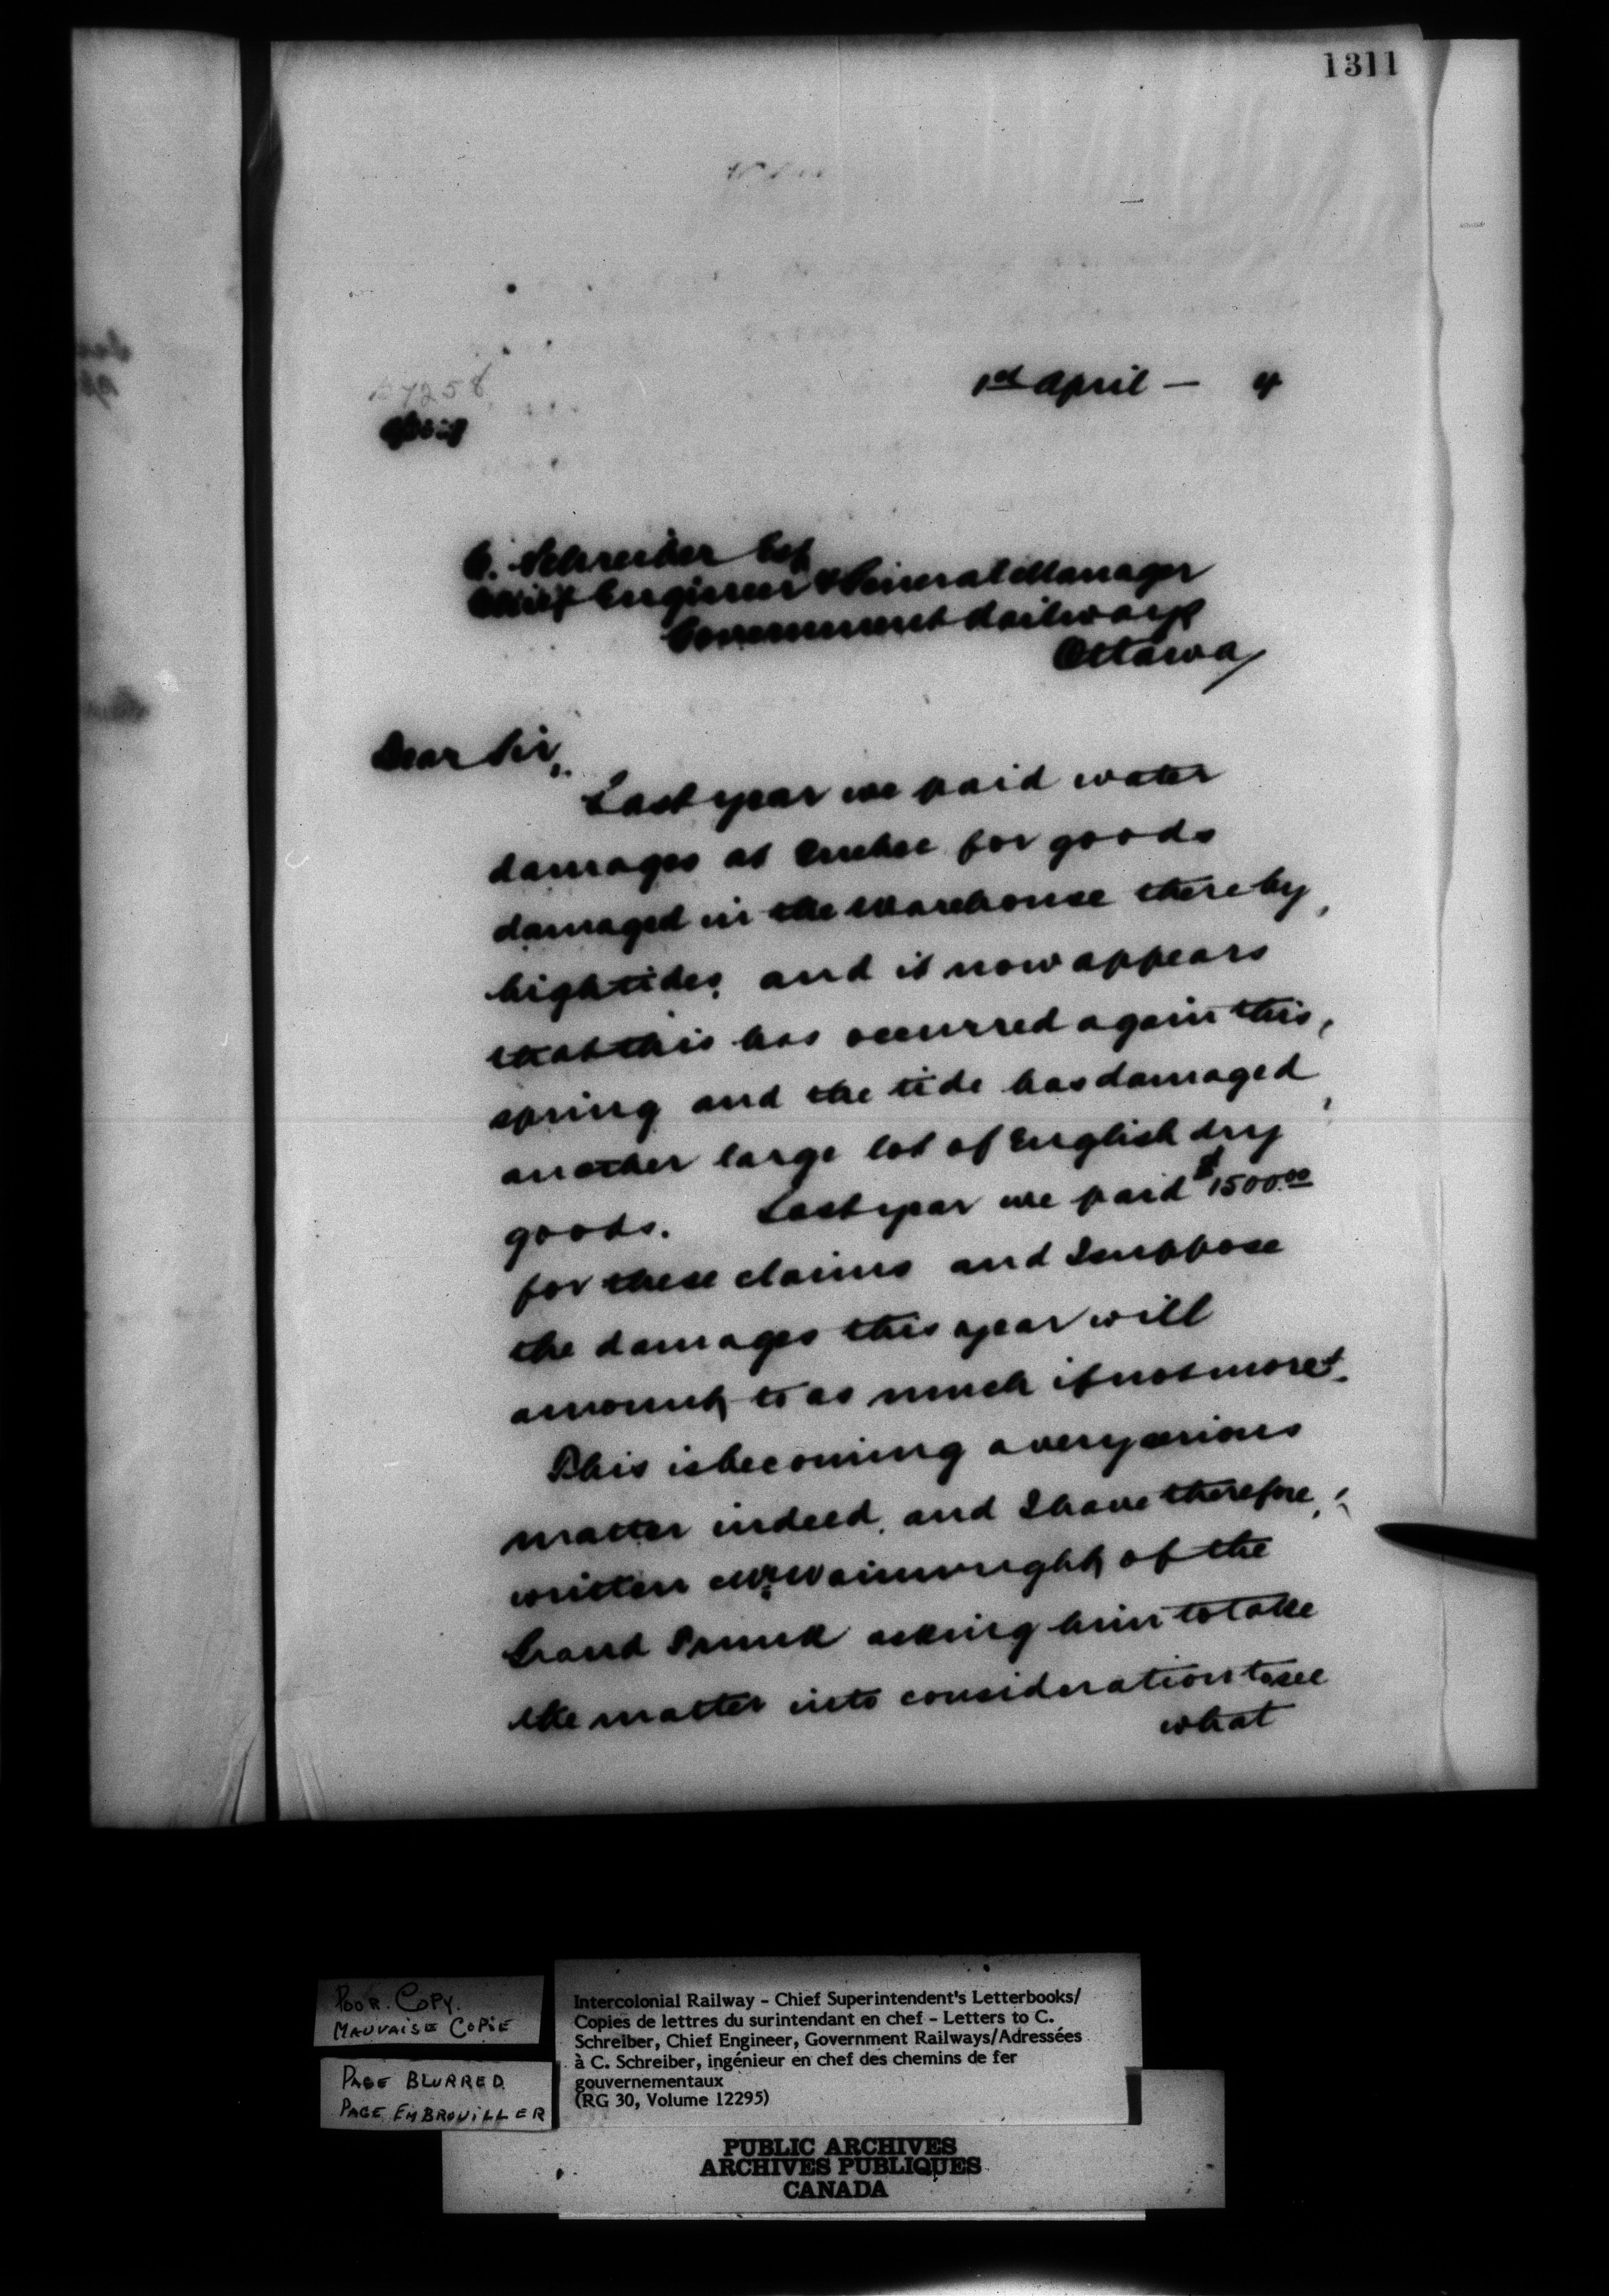 1311
1st April — 4
7258
C. Schreiber Esq
Chief Engineer & General Manager
Government Railways
Ottawa
Dear Sir,
Last year we paid water
damages at Quebec for goods
damaged in the Warehouse there by
high tides, and it now appears
that this has occurred again this
spring and the tide has damaged
another large lot of English dry
goods. Last year we paid $1500.00
for these claims and I suppose
the damages this year will
amount to as much if not more.
This is becoming a very serious
matter indeed, and I have therefore
written Mr. Wainwright of the
Grand Trunk asking him to take
the matter into consideration to see
what
POOR. COPY.
MAUVAISE COPIE
PAGE BLURRED
PAGE EMBROUILLER
Intercolonial Railway - Chief Superintendent's Letterbooks/
Copies de lettres du surintendant en chef - Letters to C.
Schreiber, Chief Engineer, Government Railways/Adressées
à C. Schreiber, ingénieur en chef des chemins de fer
gouvernementaux
(RG 30, Volume 12295)
PUBLIC ARCHIVES
ARCHIVES PUBLIQUES
CANADA